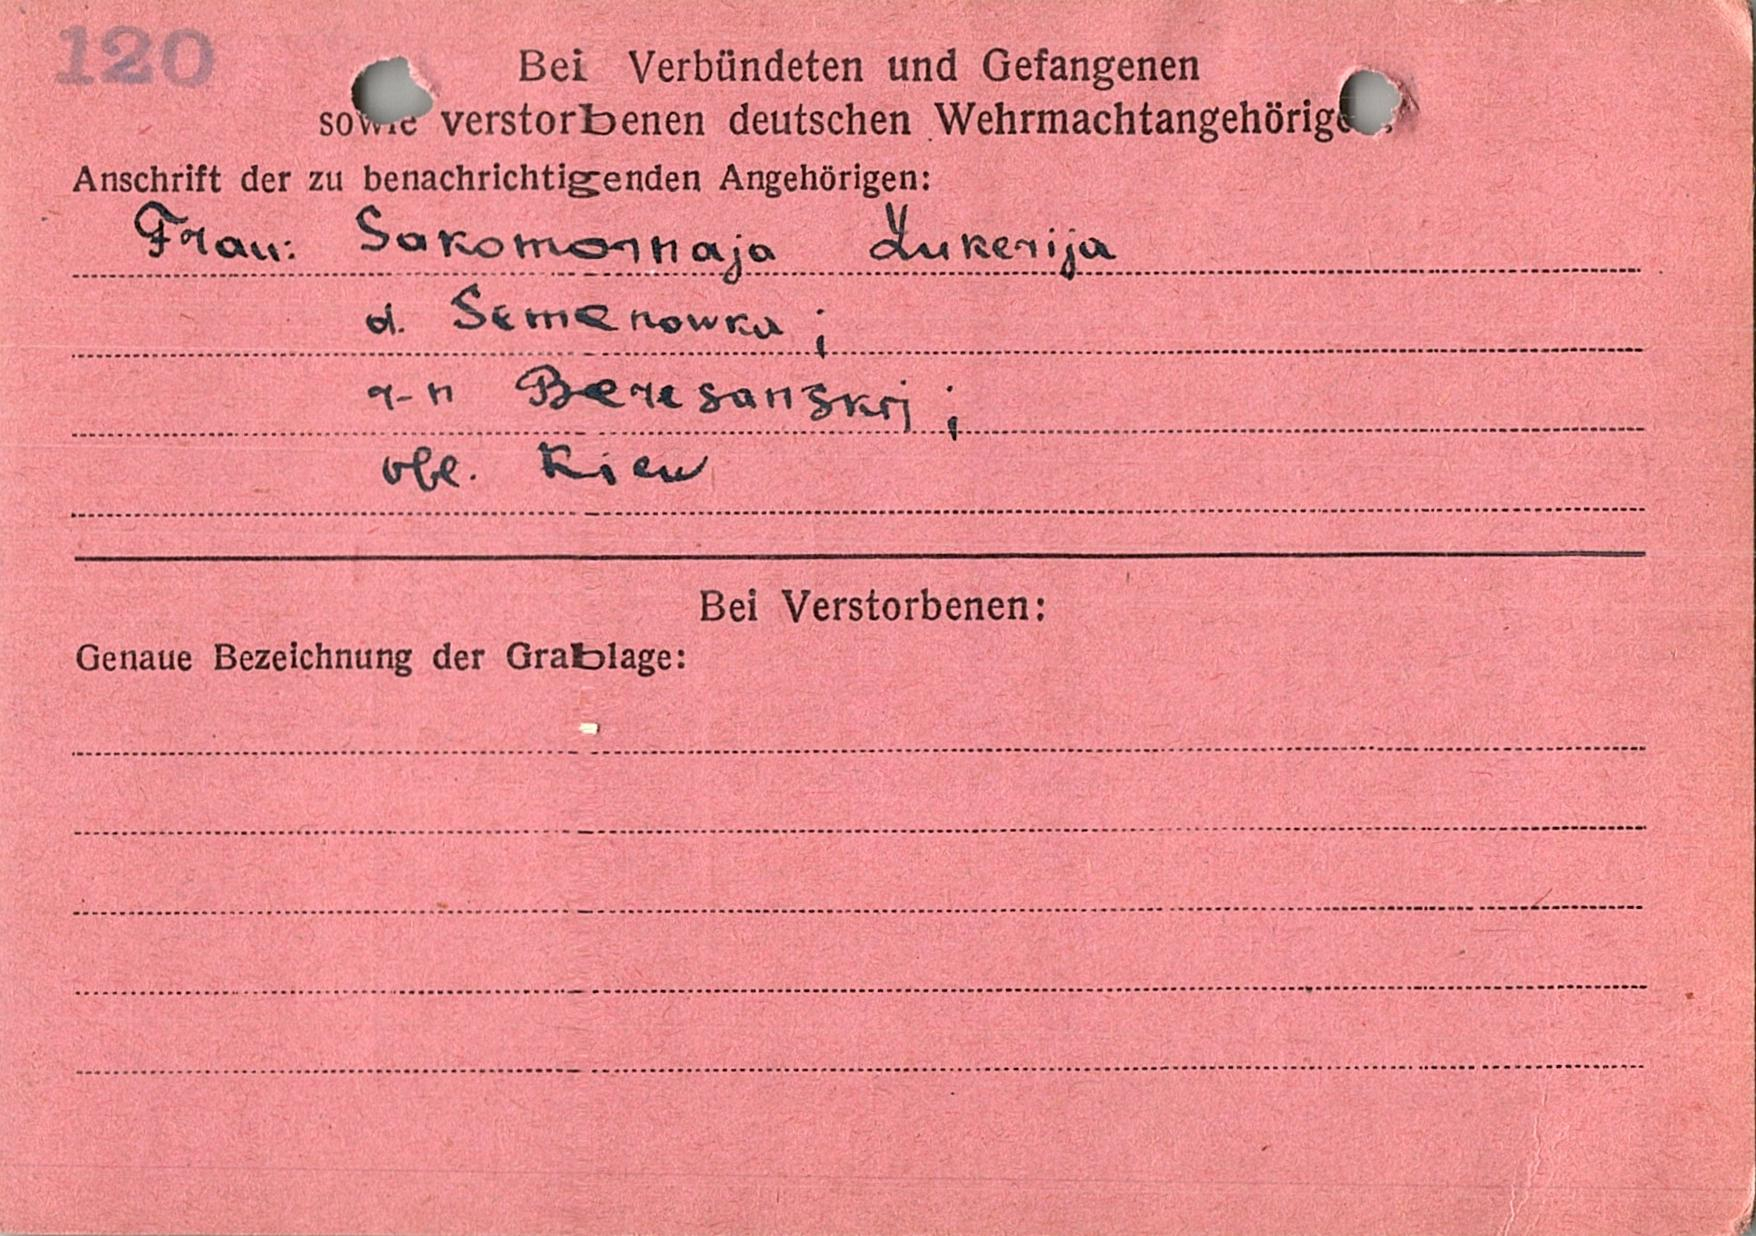 120
Bei Verbündeten und Gefangenen
sowie verstorbenen deutschen Wehrmachtangehörigen,
Anschrift der zu benachrichtigenden Angehörigen:
Frau: Sakomornaja Lukerija
d. Semenowka;
r-n Beresanskij;
obl. Kiew
Bei Verstorbenen:
Genaue Bezeichnung der Grablage: